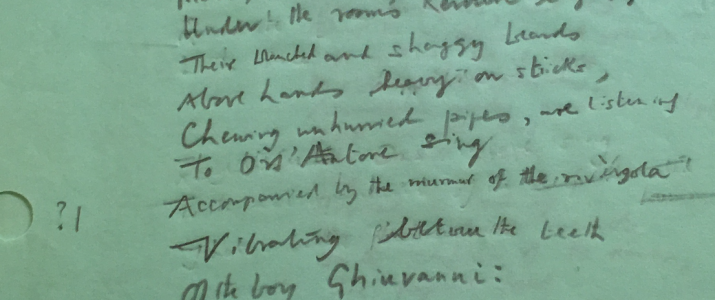 Under the rooms
Their blanched and shaggy beards
Above hands heavy on sticks,
Chewing unhurried pipes, are listening
To Ors' Antone sing
Accompanied by the murmur of the rivergola
?1
Vibrating between the teeth
Of the boy Ghiuvanni: